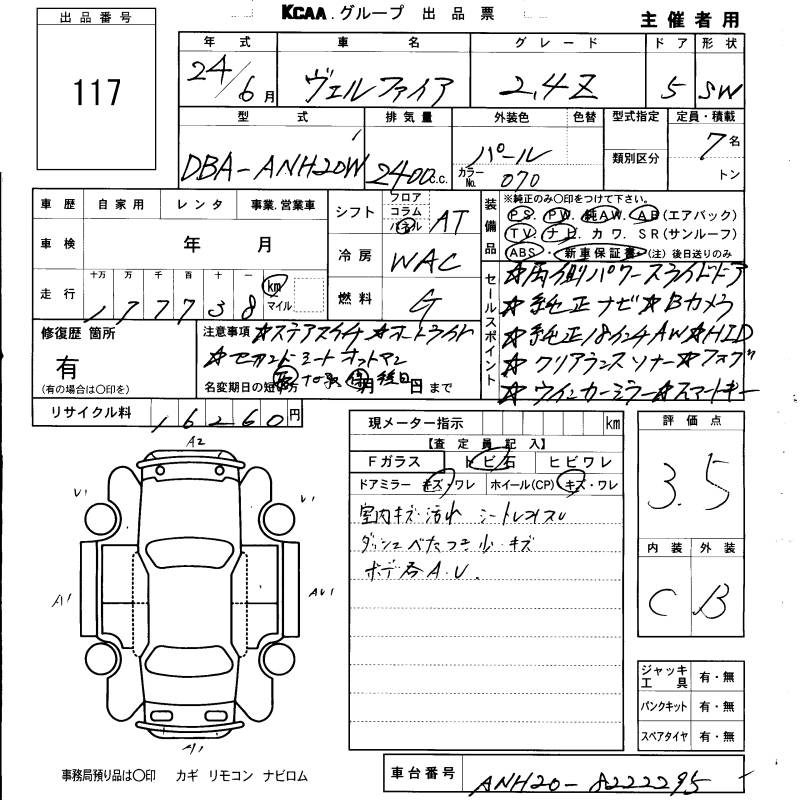 出品番号
117
KCAA.グループ 出品票
主催者用
年式 車名 グレード ドア 形状
24/6月 ヴェルファイア 2.4Z 5 SW
型式 排気量 外装色 色替 型式指定 定員・積載
DBA-ANH20W 2400c.c. パール カラーNo. 070 類別区分 7名
トン
車歴 自家用 レンタ 事業.営業車
車検 年 月
走行 十万 万 千 百 十 一 km マイル
177738
シフト フロア コラム パネル AT
冷房 WAC
燃料 G
装備品 ※純正のみ○印をつけて下さい。
PS. PW. 純AW. AB(エアバック)
TV. ナビ. カワ. SR(サンルーフ)
ABS・新車保証書・(注)後日送りのみ
セールスポイント
☆両側パワースライドドア
☆純正ナビ☆Bカメラ
☆純正18インチAW☆HID
☆クリアランスソナー☆フォグ
☆ウインカーミラー☆スマートキー
修復歴 箇所
有
(有の場合は○印を)
注意事項 ☆ステアスイチ ☆オートライト
☆セカンドシート オットマン
名変期日の短い方 月 日 まで
リサイクル料 16260円
現メーター指示 km
【査定員記入】
Fガラス トビ石 ヒビワレ
ドアミラー キズ・ワレ ホイール(CP) キズ・ワレ
室内キズ 汚れ シートレイスレ
ダッシュベたつき少 キズ
ボデ各A.U.
評価点
3.5
内装 外装
C B
ジャッキ工具 有・無
パンクキット 有・無
スペアタイヤ 有・無
A2
V1 V1
A1 AU1
A1
事務局預り品は○印 カギ リモコン ナビロム
車台番号 ANH20-8222295